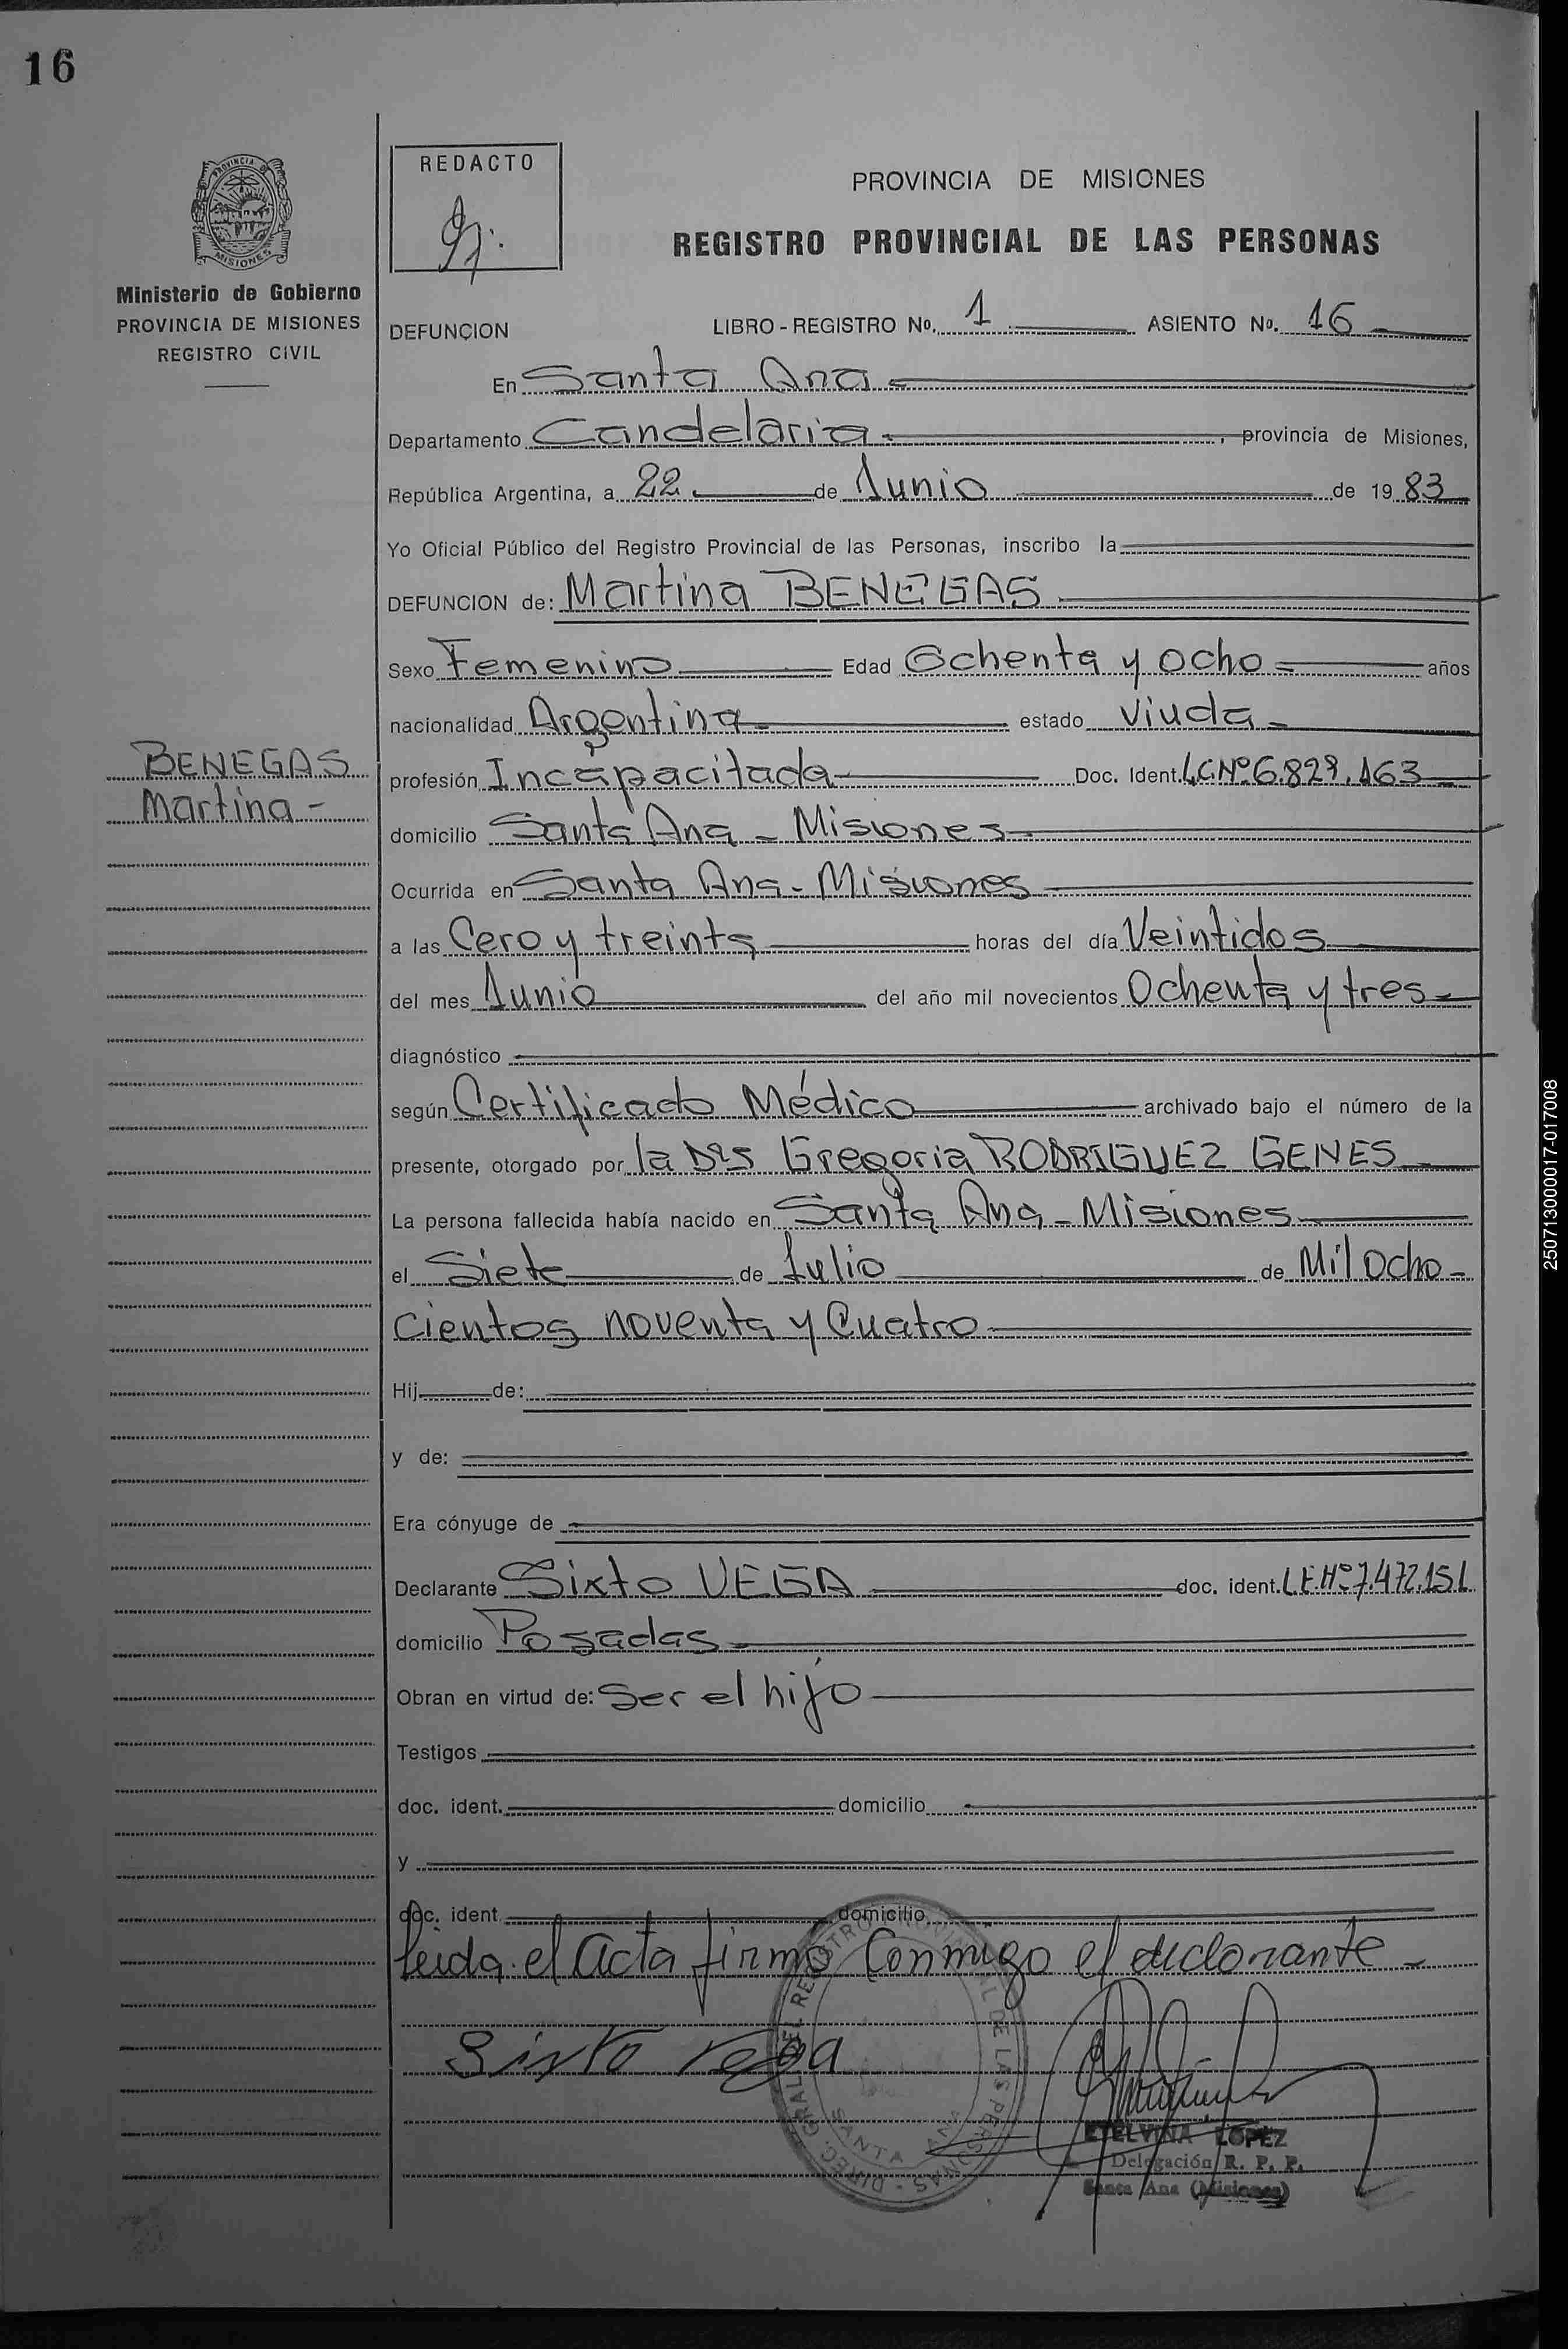 16
REDACTO
PROVINCIA DE MISIONES
REGISTRO PROVINCIAL DE LAS PERSONAS
PROVINCIA DE
MISIONES
Ministerio de Gobierno
PROVINCIA DE MISIONES
REGISTRO CIVIL
DEFUNCION LIBRO - REGISTRO Nº. 1 ASIENTO Nº. 16
En Santa Ana
Departamento Candelaria, provincia de Misiones,
República Argentina, a 22 de Junio de 1983
Yo Oficial Público del Registro Provincial de las Personas, inscribo la
DEFUNCION de: Martina BENEGAS
Sexo Femenino Edad Ochenta y ocho años
nacionalidad Argentina estado viuda
BENEGAS
Martina -
profesión Incapacitada Doc. Ident. L.C.Nº 6.829.163
domicilio Santa Ana - Misiones
Ocurrida en Santa Ana - Misiones
a las Cero y treinta horas del día Veintidos
del mes Junio del año mil novecientos Ochenta y tres
diagnóstico
según Certificado Médico archivado bajo el número de la
presente, otorgado por la Dra Gregoria RODRIGUEZ GENES
La persona fallecida había nacido en Santa Ana - Misiones
el Siete de Julio de Mil Ocho-
cientos noventa y Cuatro
Hij de:
y de:
Era cónyuge de
Declarante Sixto VEGA doc. ident. L.E.Nº 7.472.151
domicilio Posadas
Obran en virtud de: Ser el hijo
Testigos
doc. ident. domicilio
y
doc. ident. domicilio
Leida el acta firmó Conmigo el declarante
Sixto Vega
DIREC. GRAL. DEL REGISTRO PROVINCIAL DE LAS PERSONAS
SANTA ANA
ETELVINA LOPEZ
Delegación R. P. P.
Santa Ana (Misiones)
250713000017-017008